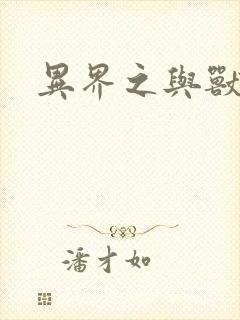 異界之與獸
潘才如